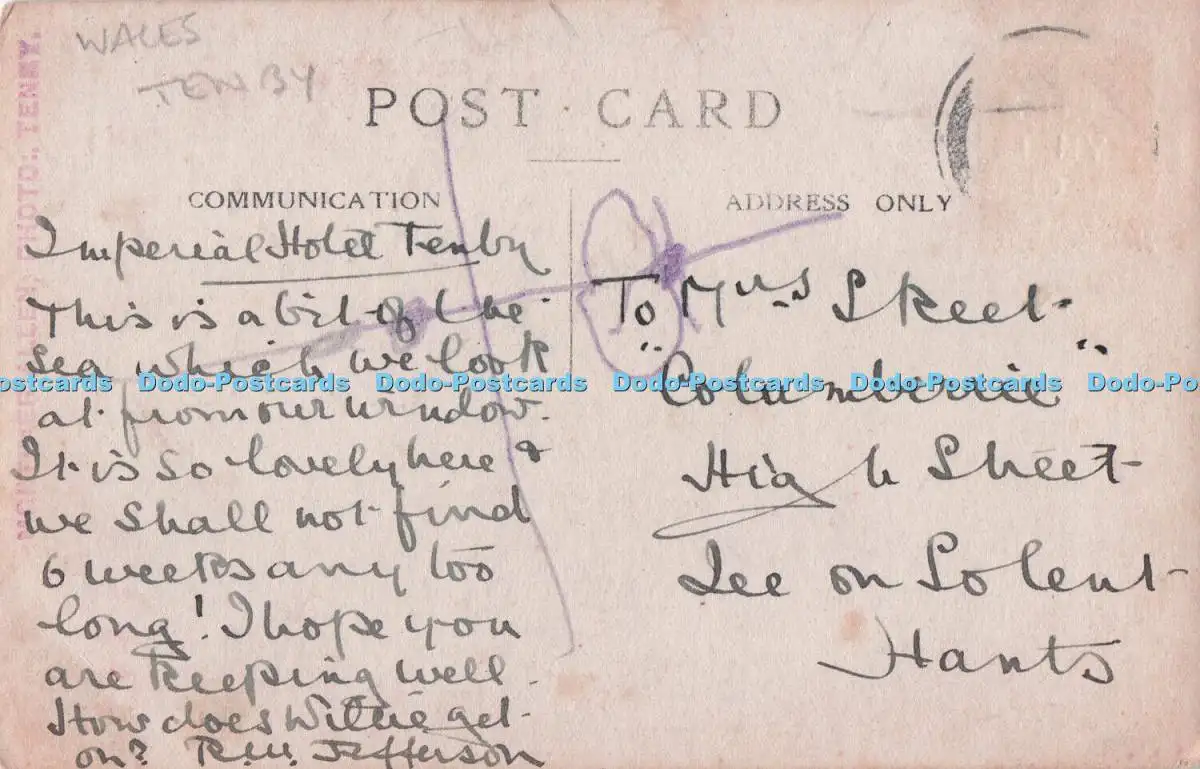 WALES
TENBY
POST CARD
COMMUNICATION
Imperial Hotel Tenby
This is a bit of the
sea which we look
at from our window.
It is so lovely here &
we shall not find
6 weeks any too
long! I hope you
are keeping well.
How does Willie get
on? R.W. Jefferson
ADDRESS ONLY
To Mrs Skeet
"Columbine"
High Street
Lee on Solent
Hants
PHOTO: TENBY.
Dodo-Postcards Dodo-Postcards Dodo-Postcards Dodo-Postcards Dodo-Postcards